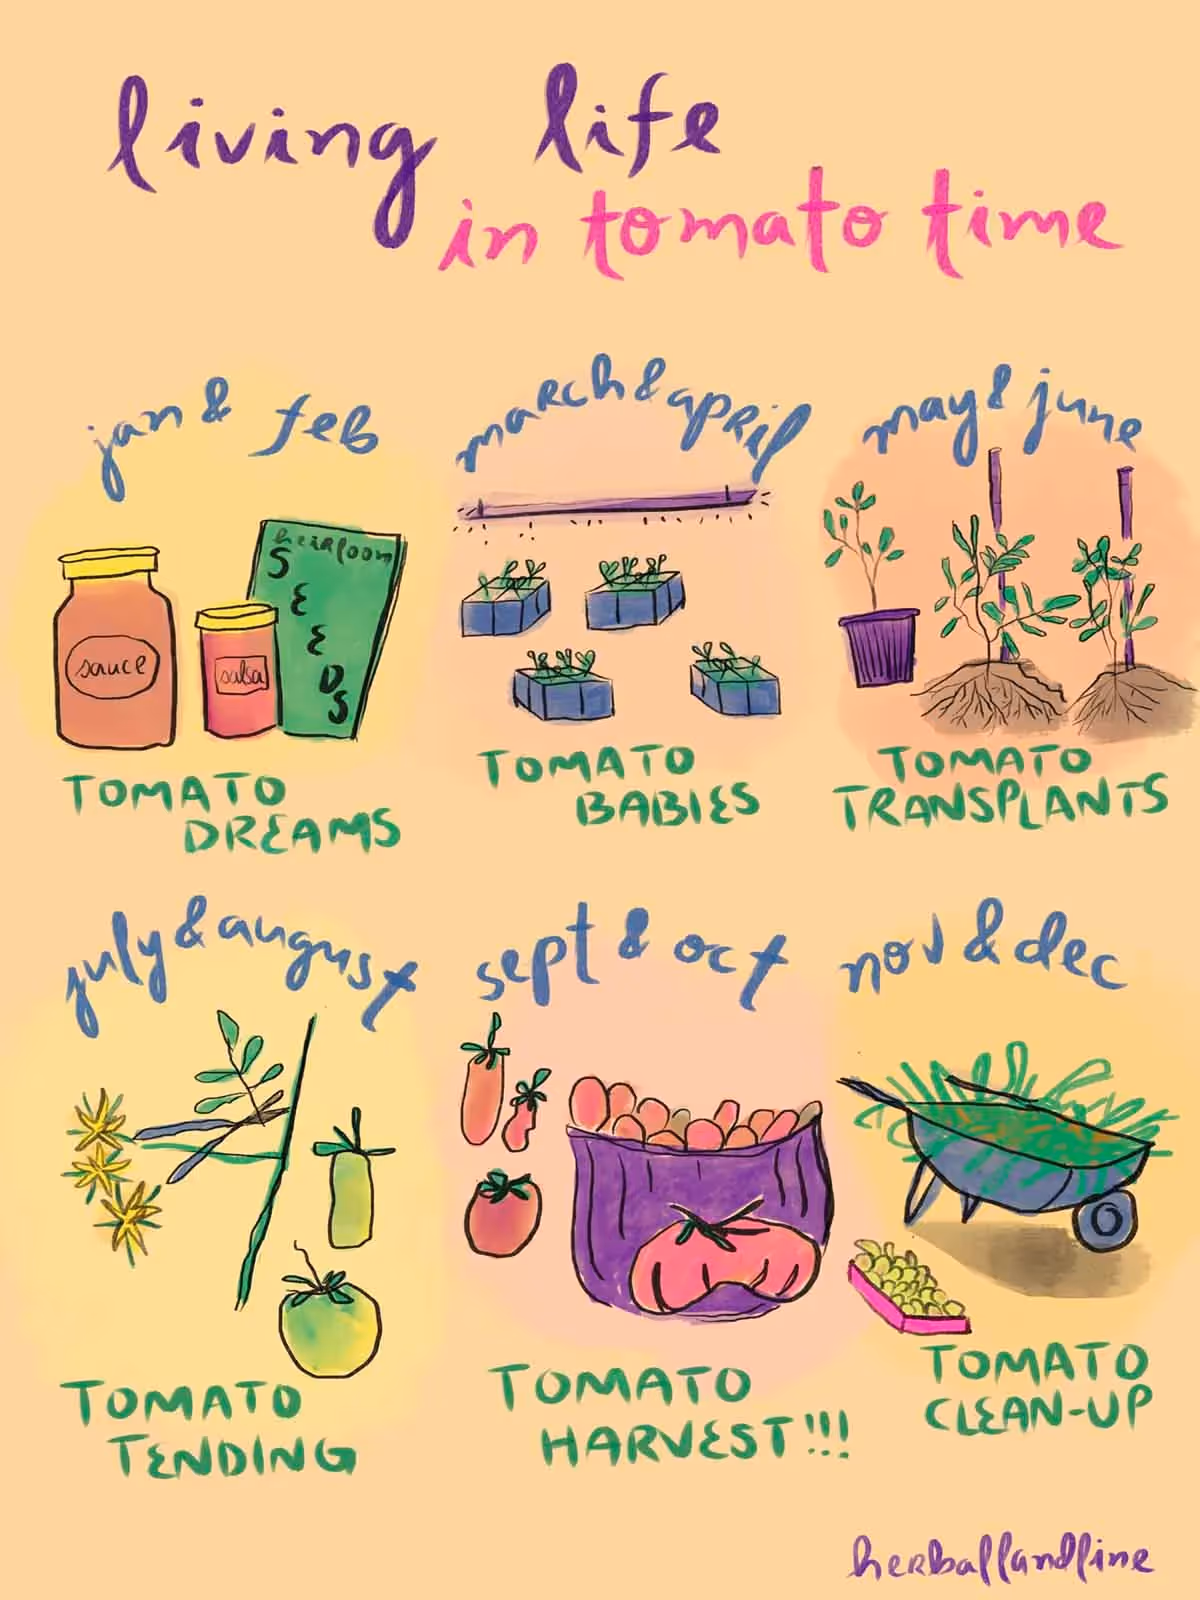 living life
in tomato time
jan & feb
heirloom
SEEDS
sauce
salsa
TOMATO
DREAMS
march & april
TOMATO
BABIES
may & june
TOMATO
TRANSPLANTS
july & august
TOMATO
TENDING
sept & oct
TOMATO
HARVEST!!!
nov & dec
TOMATO
CLEAN-UP
herballandline